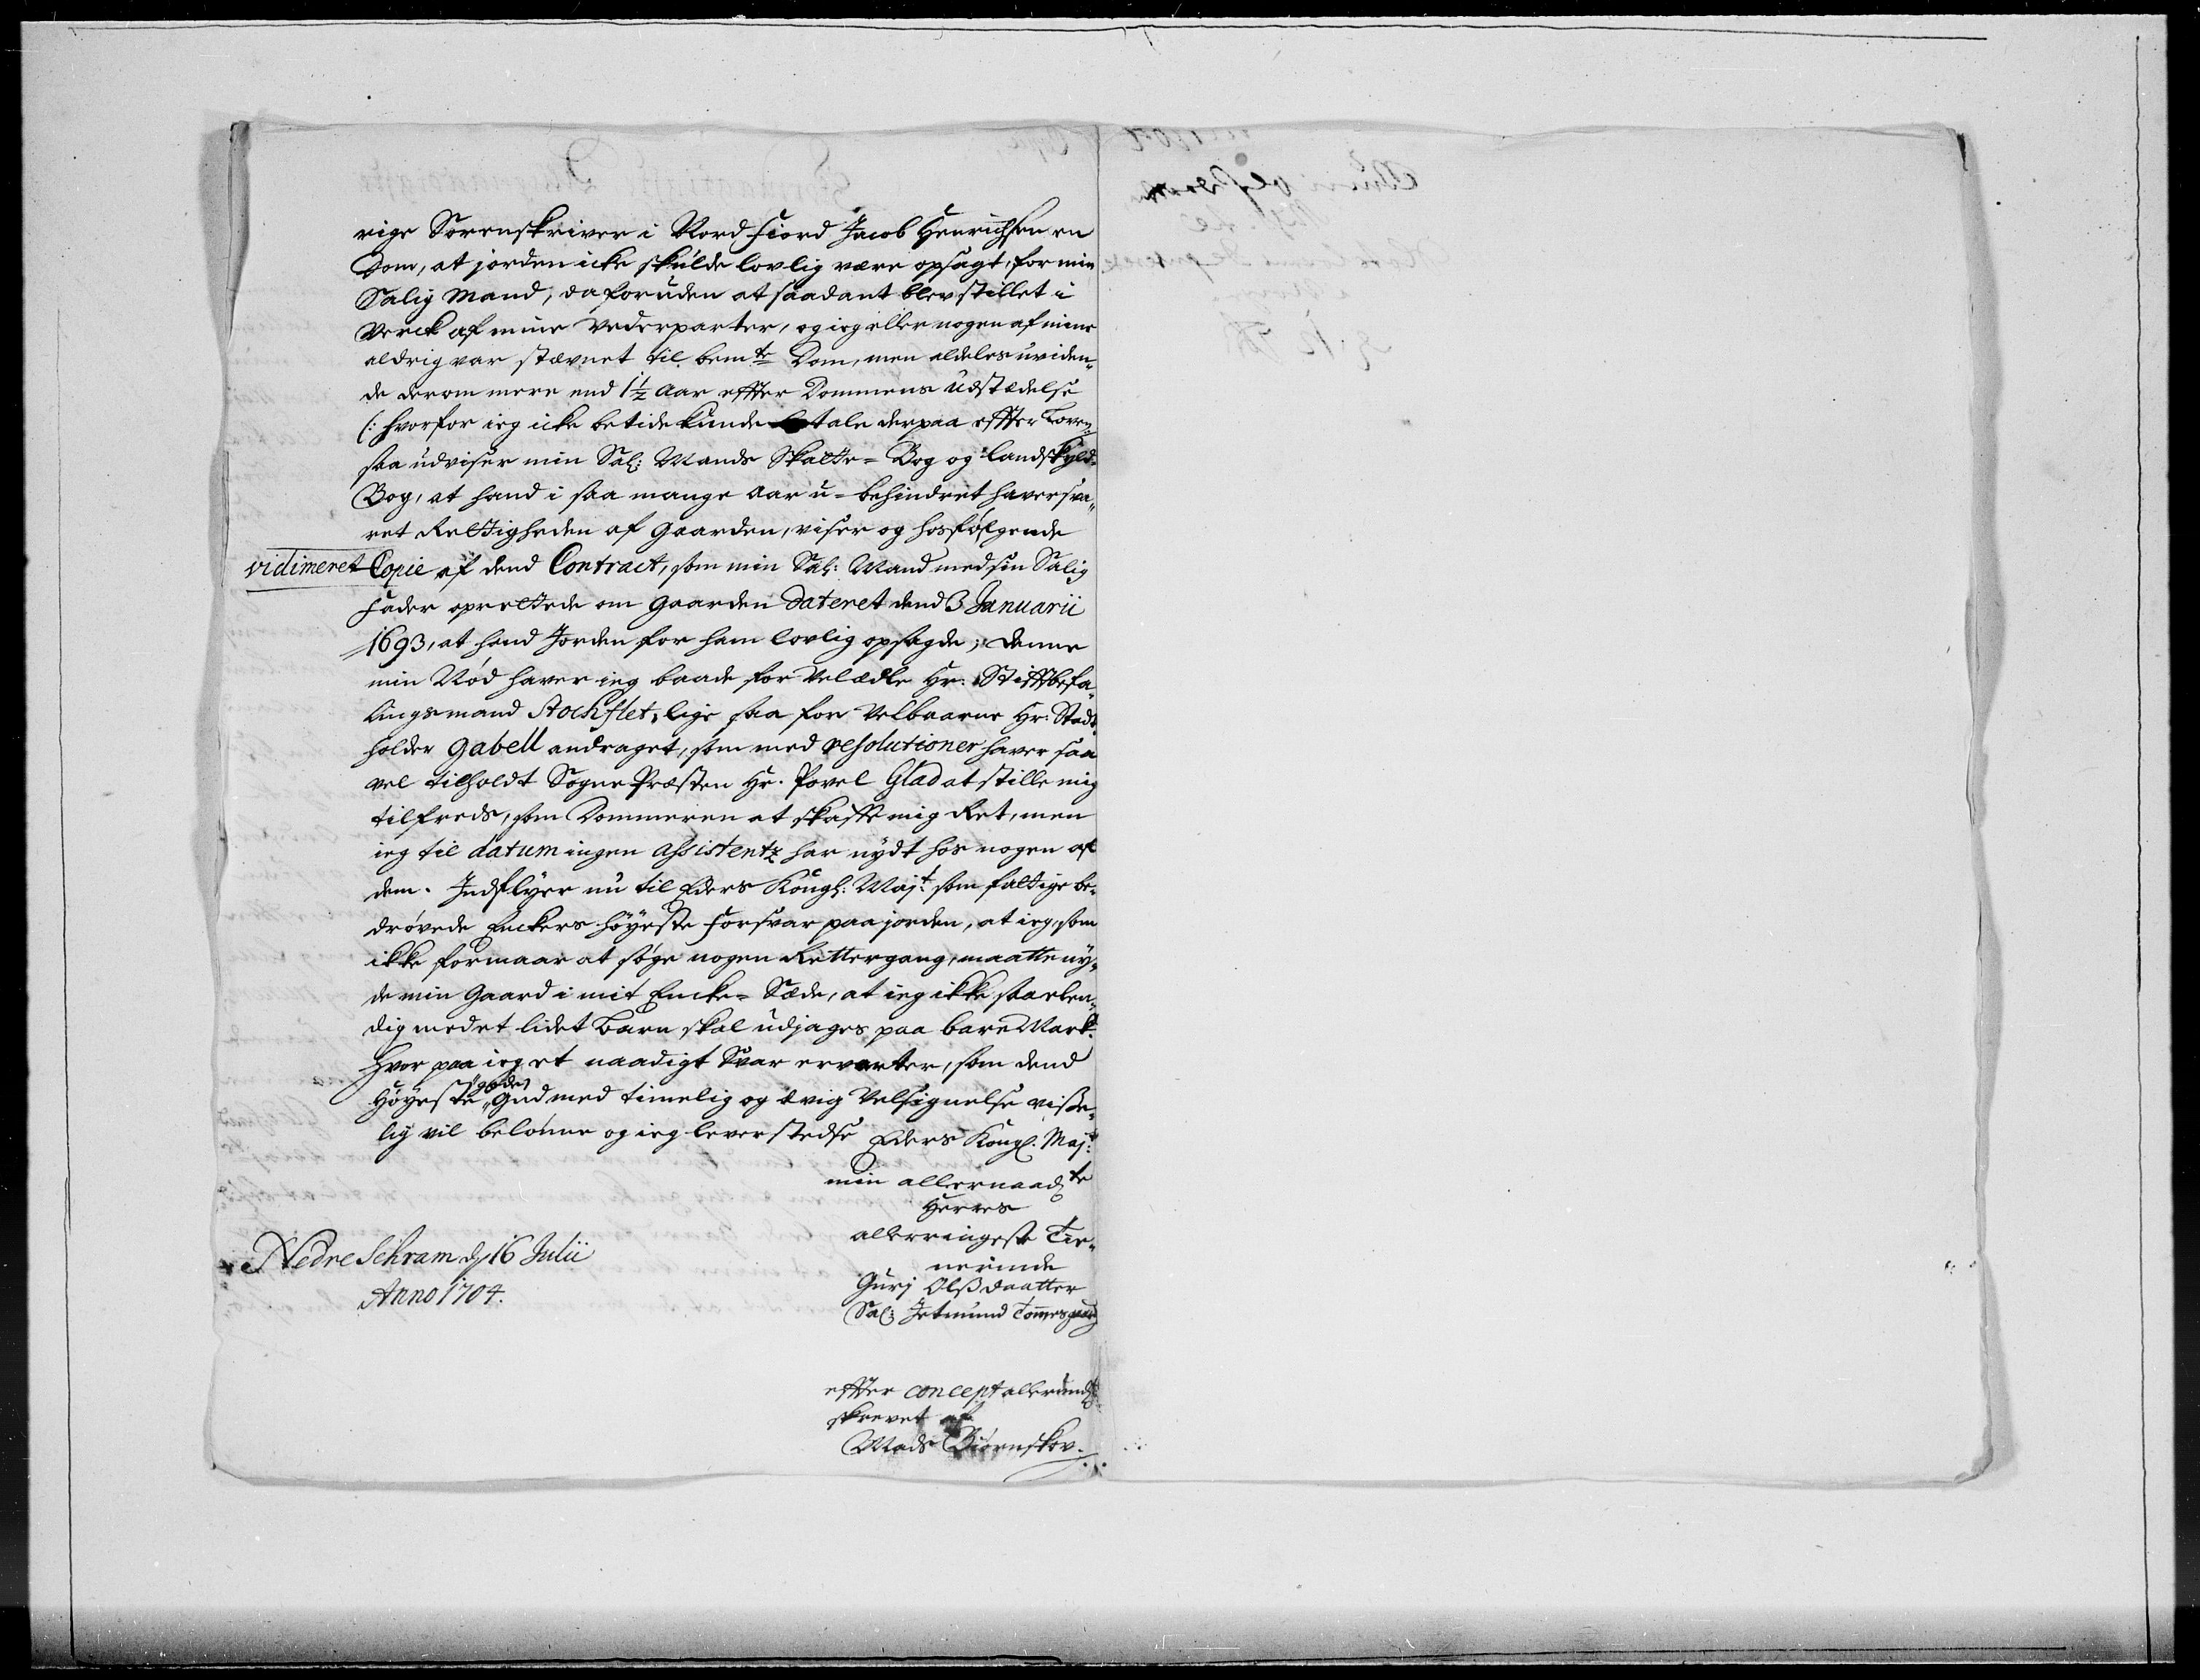 rige Sorenskriver i Nord Fiord Jacob Henrichsen en
Dom, at jorden icke skulde lovlig være opsagt, for min
Salig Mand, da foruden at saadant blev stillet i
Verck af mine Vederparter, og ieg eller nogen af mine
aldrig var stævnet til bemte Dom, men aldeles uviden„
de derom mere end 1½ Aar effter Dommens Udstædelse
(: hvorfor ieg icke betide kunde tale derpaa effter Loven
saa udviser min Sal: Mands Skatte= Bog og landskyld=
Bog, at hand i saa mange Aar u=behindret haver sva„
ret Rettigheden af Gaarden, viser og hosfølgende
vidimeret Copie af dend Contract, som min Sal: Mand med sin Salig
Fader oprettede om Gaarden Dateret dend 3 Januarii
1693, at hand Jorden for ham lovlig opsagde; denne
min Nød haver ieg baade for Velædle Hr: Stifftbefa„
lingsmand Stochflet, lige saa for Velbaarne Hr: Stadt„
holder Gabell andraget, som med resolutioner haver saa
vel tilholdt Sogne Præsten Hr. Povel Glad at stille mig
tilfreds, som Dommeren at skaffe mig Ret, men
ieg til datum ingen Assistentz har nydt hos nogen af
dem. Indflyer nu til Eders Kongl: Majt: som faltige be„
drøvede Enckers høyeste Forsvar paa jorden, at ieg, som
ikke formaar at søge nogen Rettergang, maatte ny„
de min Gaard i mit Encke= Sæde, at ieg ikke saa elen„
dig med et lidet Barn skal udjages paa bare Mark.
Hvor paa ieg et naadigt Svar ervarter, som dend
Høyeste gode Gud med timelig og ævig Velsignelse visse„
lig vil belønne og ieg lever stedse Eders Kongl. Majt:
min allernaadte
Herres
allerringeste Tie„
nerinde
Gurj Olßdaatter
Sal: Jetmund
Nedre Schram d. 16 Julii
Anno 1704.
effter concept allerund
skrevet af
Mads Biørnskov.